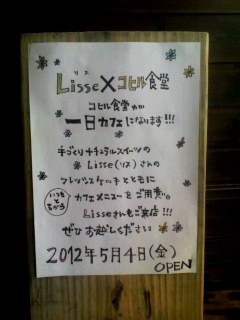 リス
Lisse×コヒル食堂
コヒル食堂が
一日カフェになります!!!
手づくりナチュラルスイーツの
Lisse(リス)さんの
フレッシュケーキとともに
いつもとちがう
カフェメニューをご用意。
Lisseさんもご来店!!!
ぜひお越しください
2012年5月4日(金)
OPEN